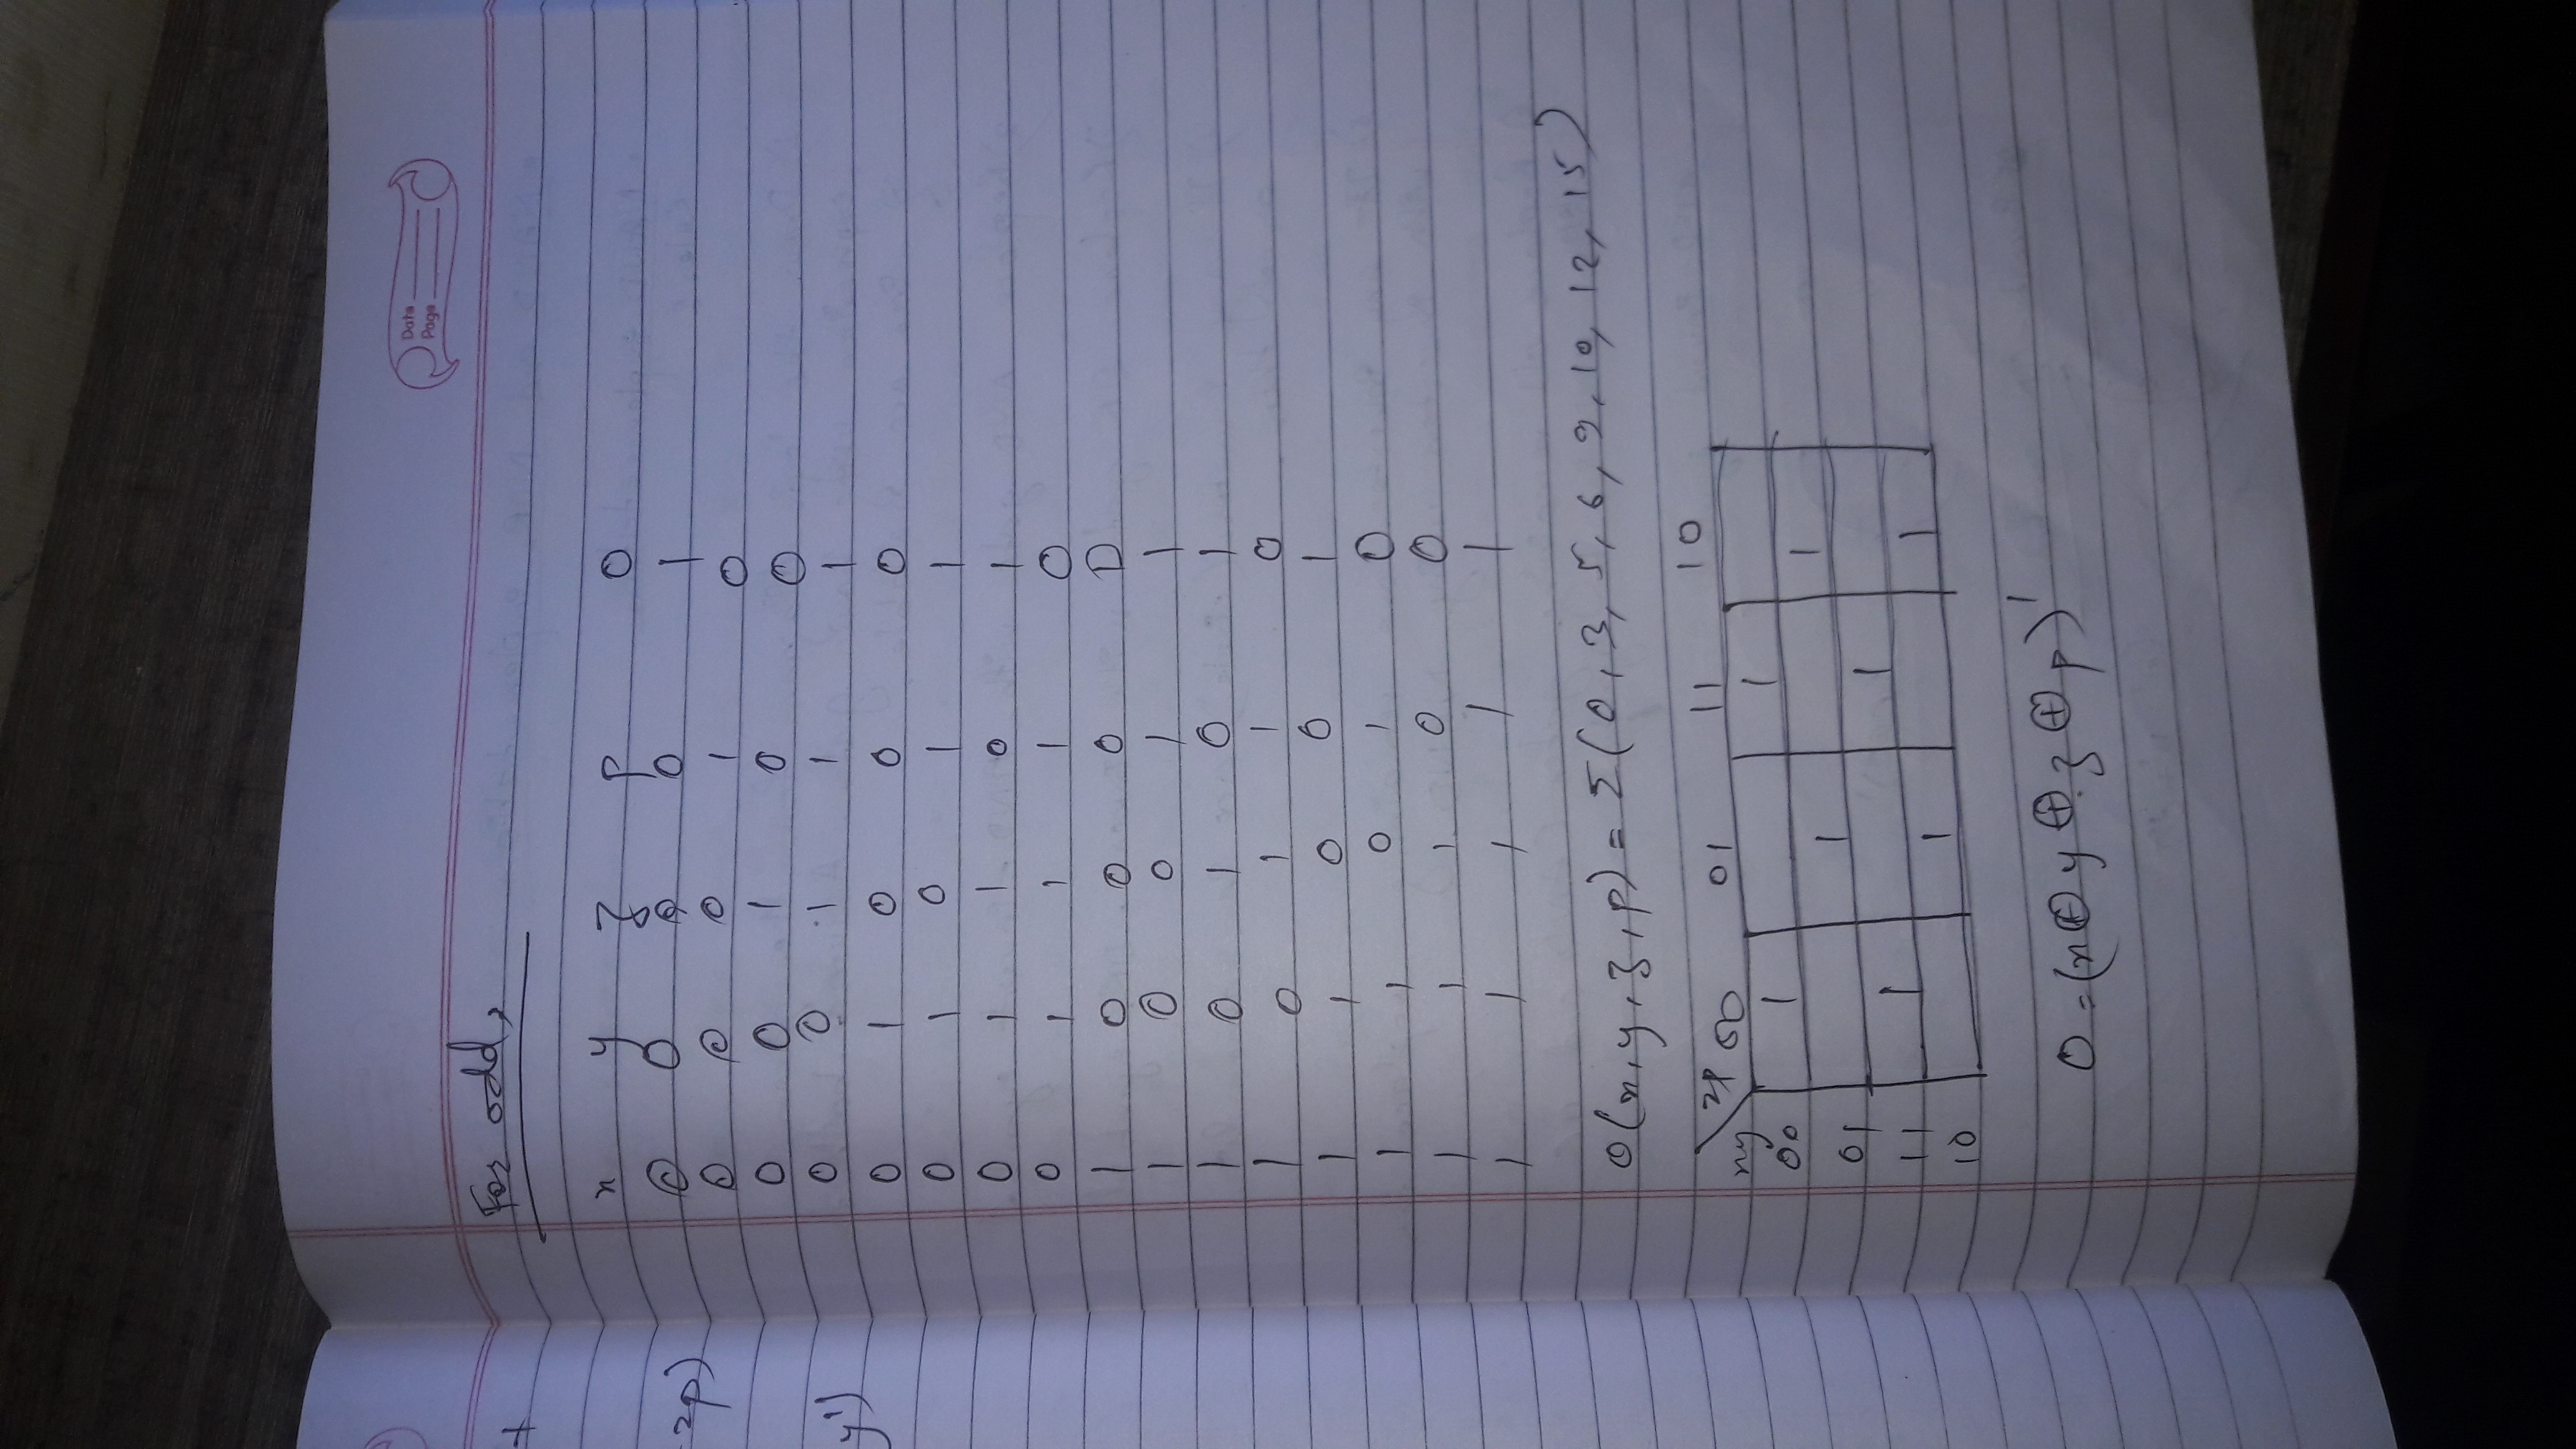 Date
Page
For odd,
x y z P O
0 0 0 0 1
0 0 0 1 0
0 0 1 0 0
0 0 1 1 1
0 1 0 0 0
0 1 0 1 1
0 1 1 0 1
0 1 1 1 0
1 0 0 0 0
1 0 0 1 1
1 0 1 0 1
1 0 1 1 0
1 1 0 0 1
1 1 0 1 0
1 1 1 0 0
1 1 1 1 1
O(x,y,z,p) = Σ(0,3,5,6,9,10,12,15)
zp 00 01 11 10
xy
00 1 1
01 1 1
11 1 1
10 1 1
O = (x⊕y⊕z⊕p)'
+
zp)
y')